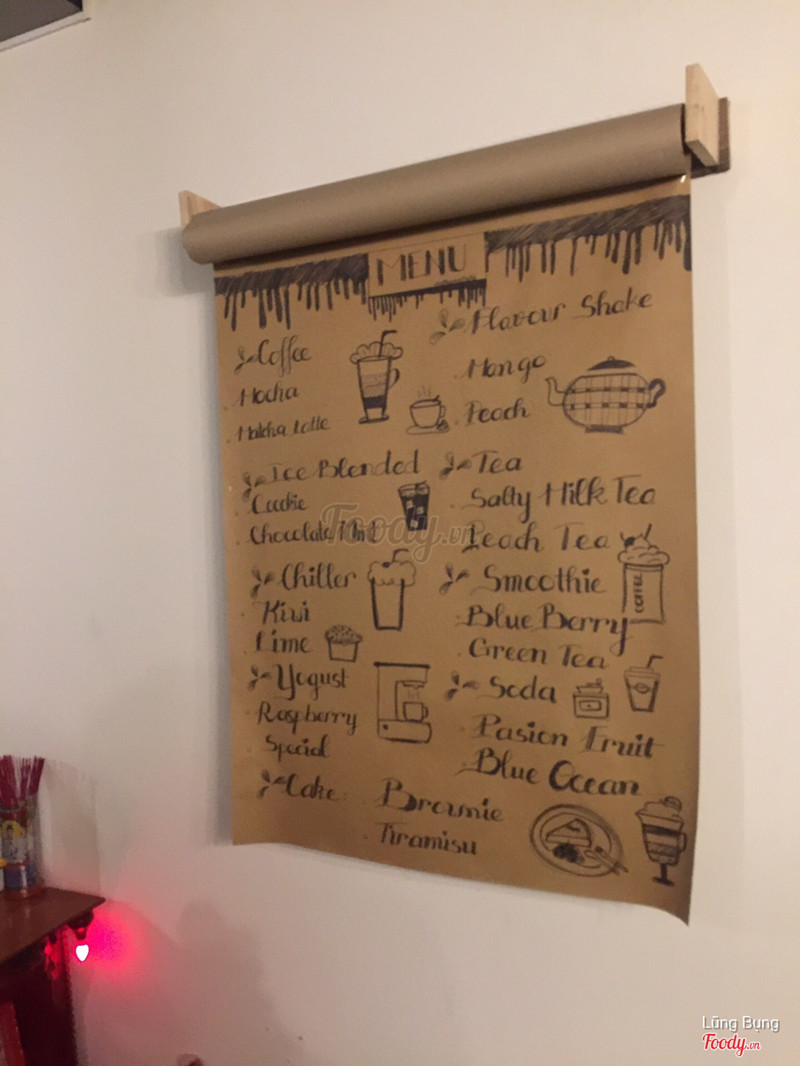 MENU
Coffee
Mocha
Matcha Latte
Ice Blended
Cookie
Chocolate Mint
Chiller
Kiwi
Lime
Yogust
Raspberry
Special
Cake:
Brownie
Tiramisu
Flavour Shake
Mango
Peach
Tea
Salty Milk Tea
Peach Tea
Smoothie
Blue Berry
Green Tea
Soda
Pasion Fruit
Blue Ocean
COFFEE
Foody.vn
Lũng Bụng
Foody.vn